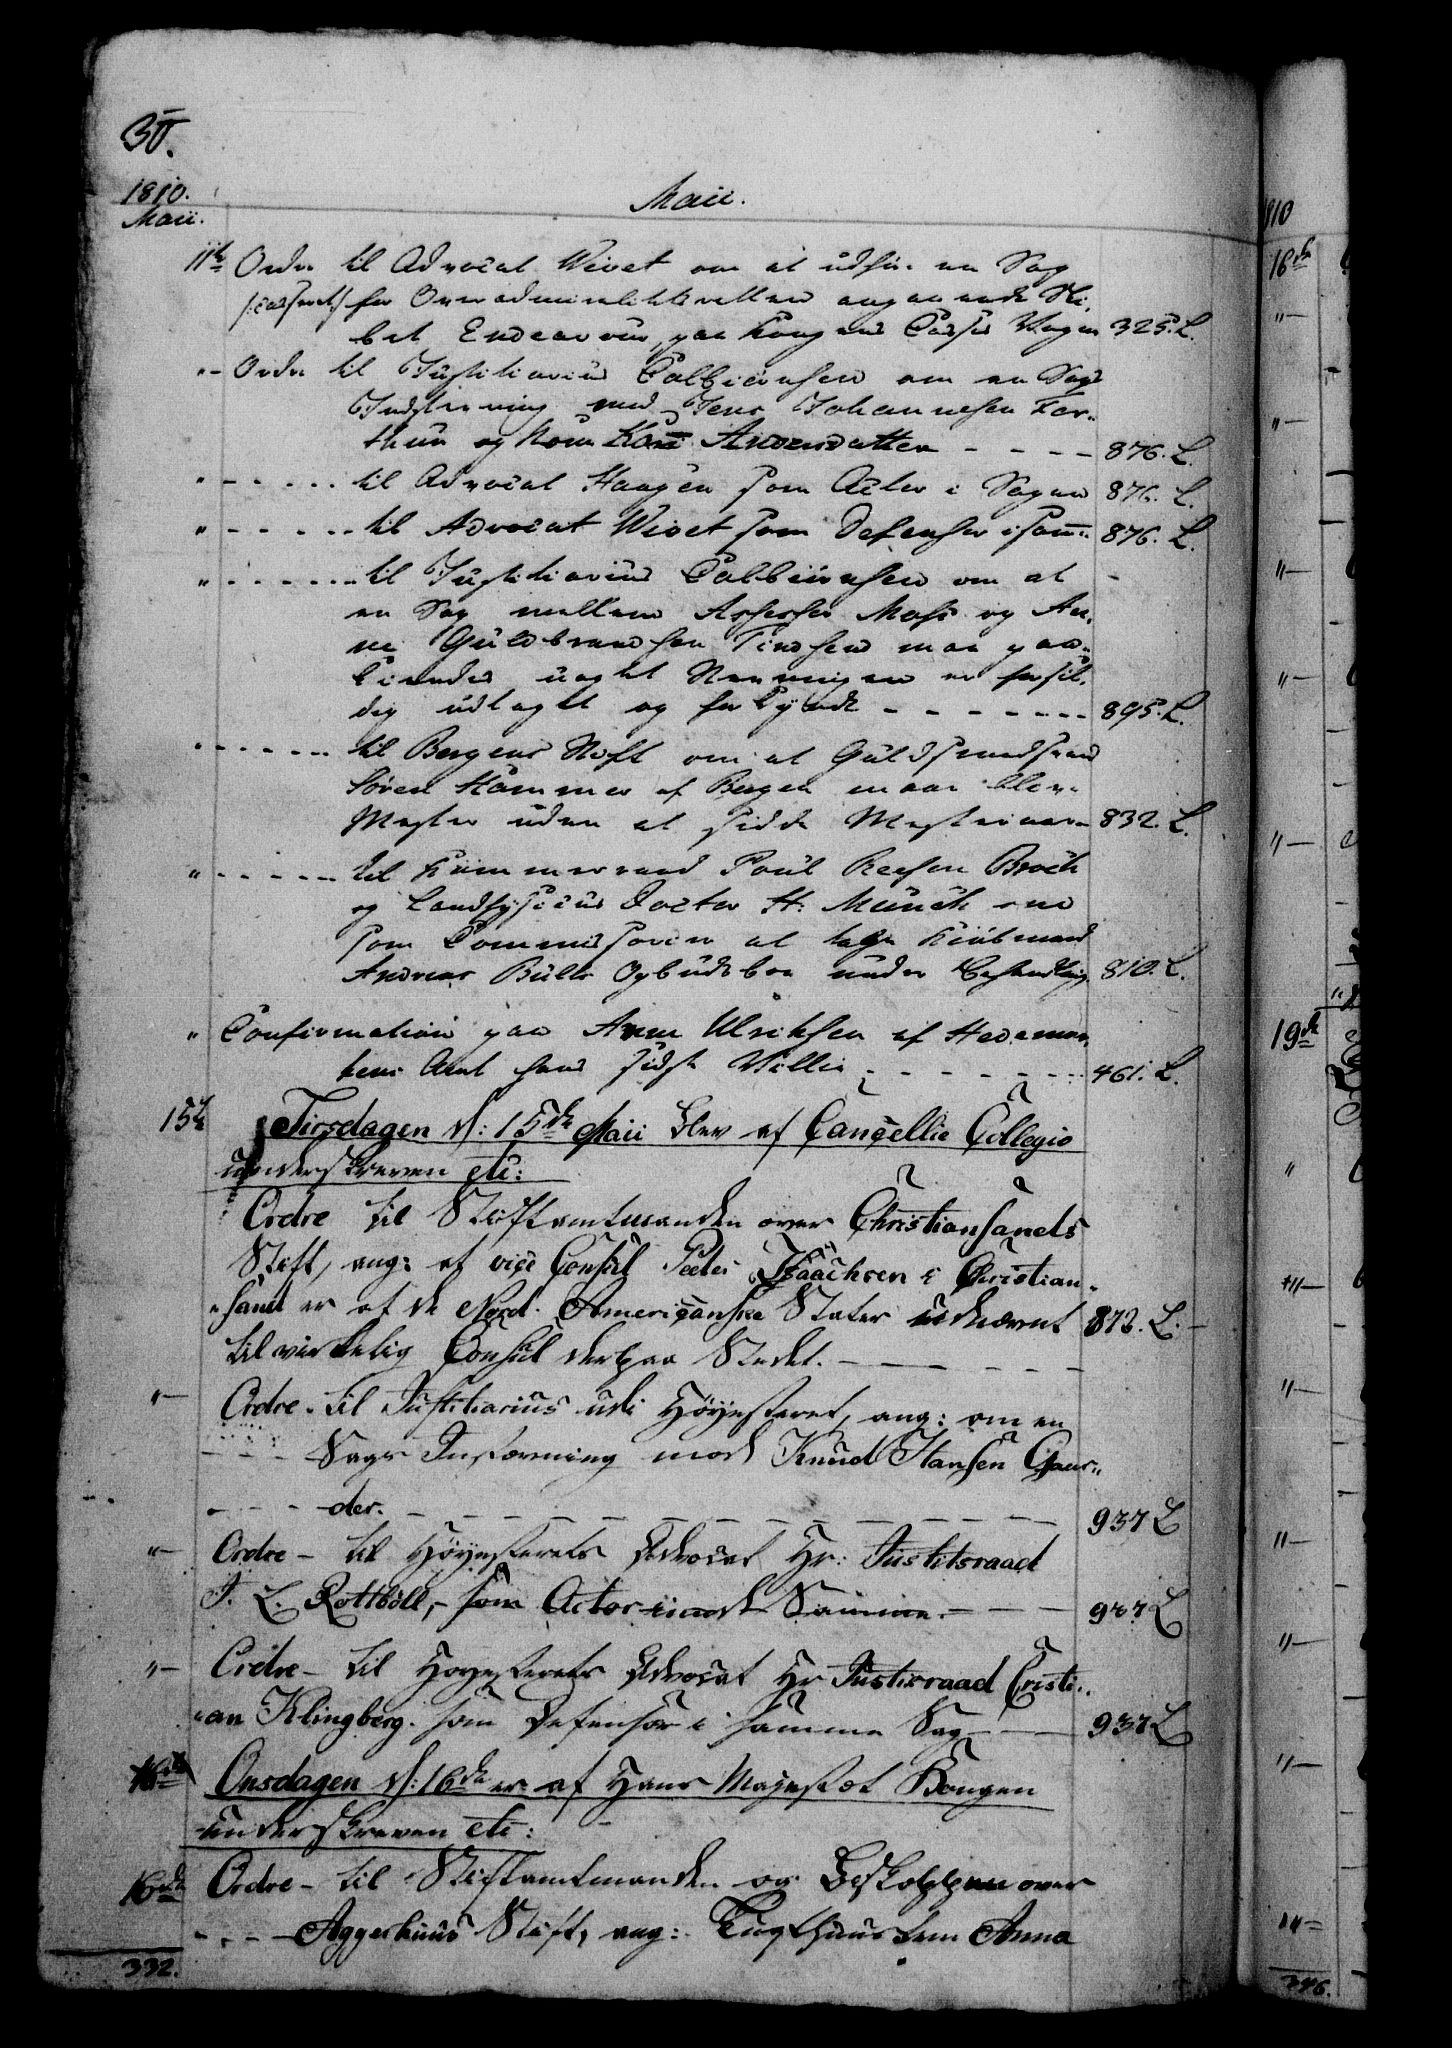 30.
1810.
Maii.
Maii.
11te Ordre til Advocat Wivet om at udføre en Sag
/:cassert:/ for Overadmiralitetsretten angaaende Ski-
bet Endeavour, paa Kongens Casses Vegne 325. L.
"- Ordre til Justitiarius Colbiørnsen om en Sags
Indstevning mod Jens Johannesen For-
thun og Kone Kari Andersdatter - - - - 876. L.
" - - - - - til Advocat Haagen som Actor i Sagen 876. L.
" - - - - - til Advocat Wivet som Defensor i samme 876. L.
" - - - - - til Justitiarius Colbiørnsen om at
en Sag mellem Assessor Mose og An-
ne Guldbrandsen maa paa-
kiendes uagtet Stevningen er for sil-
dig udtaget og forkyndt - - - - - - - 895. L.
" - - - - - til Bergens Stift om at Guldsmedsvend
Søren Hammer af Bergen maa blive
Mester uden at sidde Mesteraaret 832. L.
" - - - - - til Kammerraad Poul Broch
og Landfysicus Doctor H: Munch
som Commissarier at tage Kiøbmand
Andreas Bulls Opbudsboe under Behandling 810. L.
" Confirmation paa Arne Ulriksen af Hedemar-
kens Amt hans sidste Villie - - - - - - - 461. L.
15de Tirsdagen d: 15de Maii blev af Cancellie Collegio
underskreven etc:
Ordre til Stiftamtmanden over Christiansands
Stift, ang: at vice Consul Peder Isaachsen i Christian-
sand er af de Nord-Americanske Stater udnævnt 872. L.
til virkelig Consul derpaa Stedet. - - - - - -
"- Ordre - til Justitiarius udi Høyesteret, ang: om en
- - - Sags Instævning mod Knud Hansen Gaar-
- - - der. - - - - - - - - - - - - 937 L
"- Ordre - til Høyesterets Advocat Hr: Justitsraad
T. L. Rottböll, som Actor imod Samme. - - - 937 L
"- Ordre - til Høyesterets Advocat Hr Justisraad Cristi-
an Klingberg. som Defensor i samme Sag - - - 937 L
16de Onsdagen d: 16de er af Hans Majestæt Kongen
underskreven etc:
16de Ordre - til Stiftamtmanden og Biskoppen over
- - - Aggerhuus Stift, ang: Tugthuuslem Anna
332.
1810
16de
19de
346.